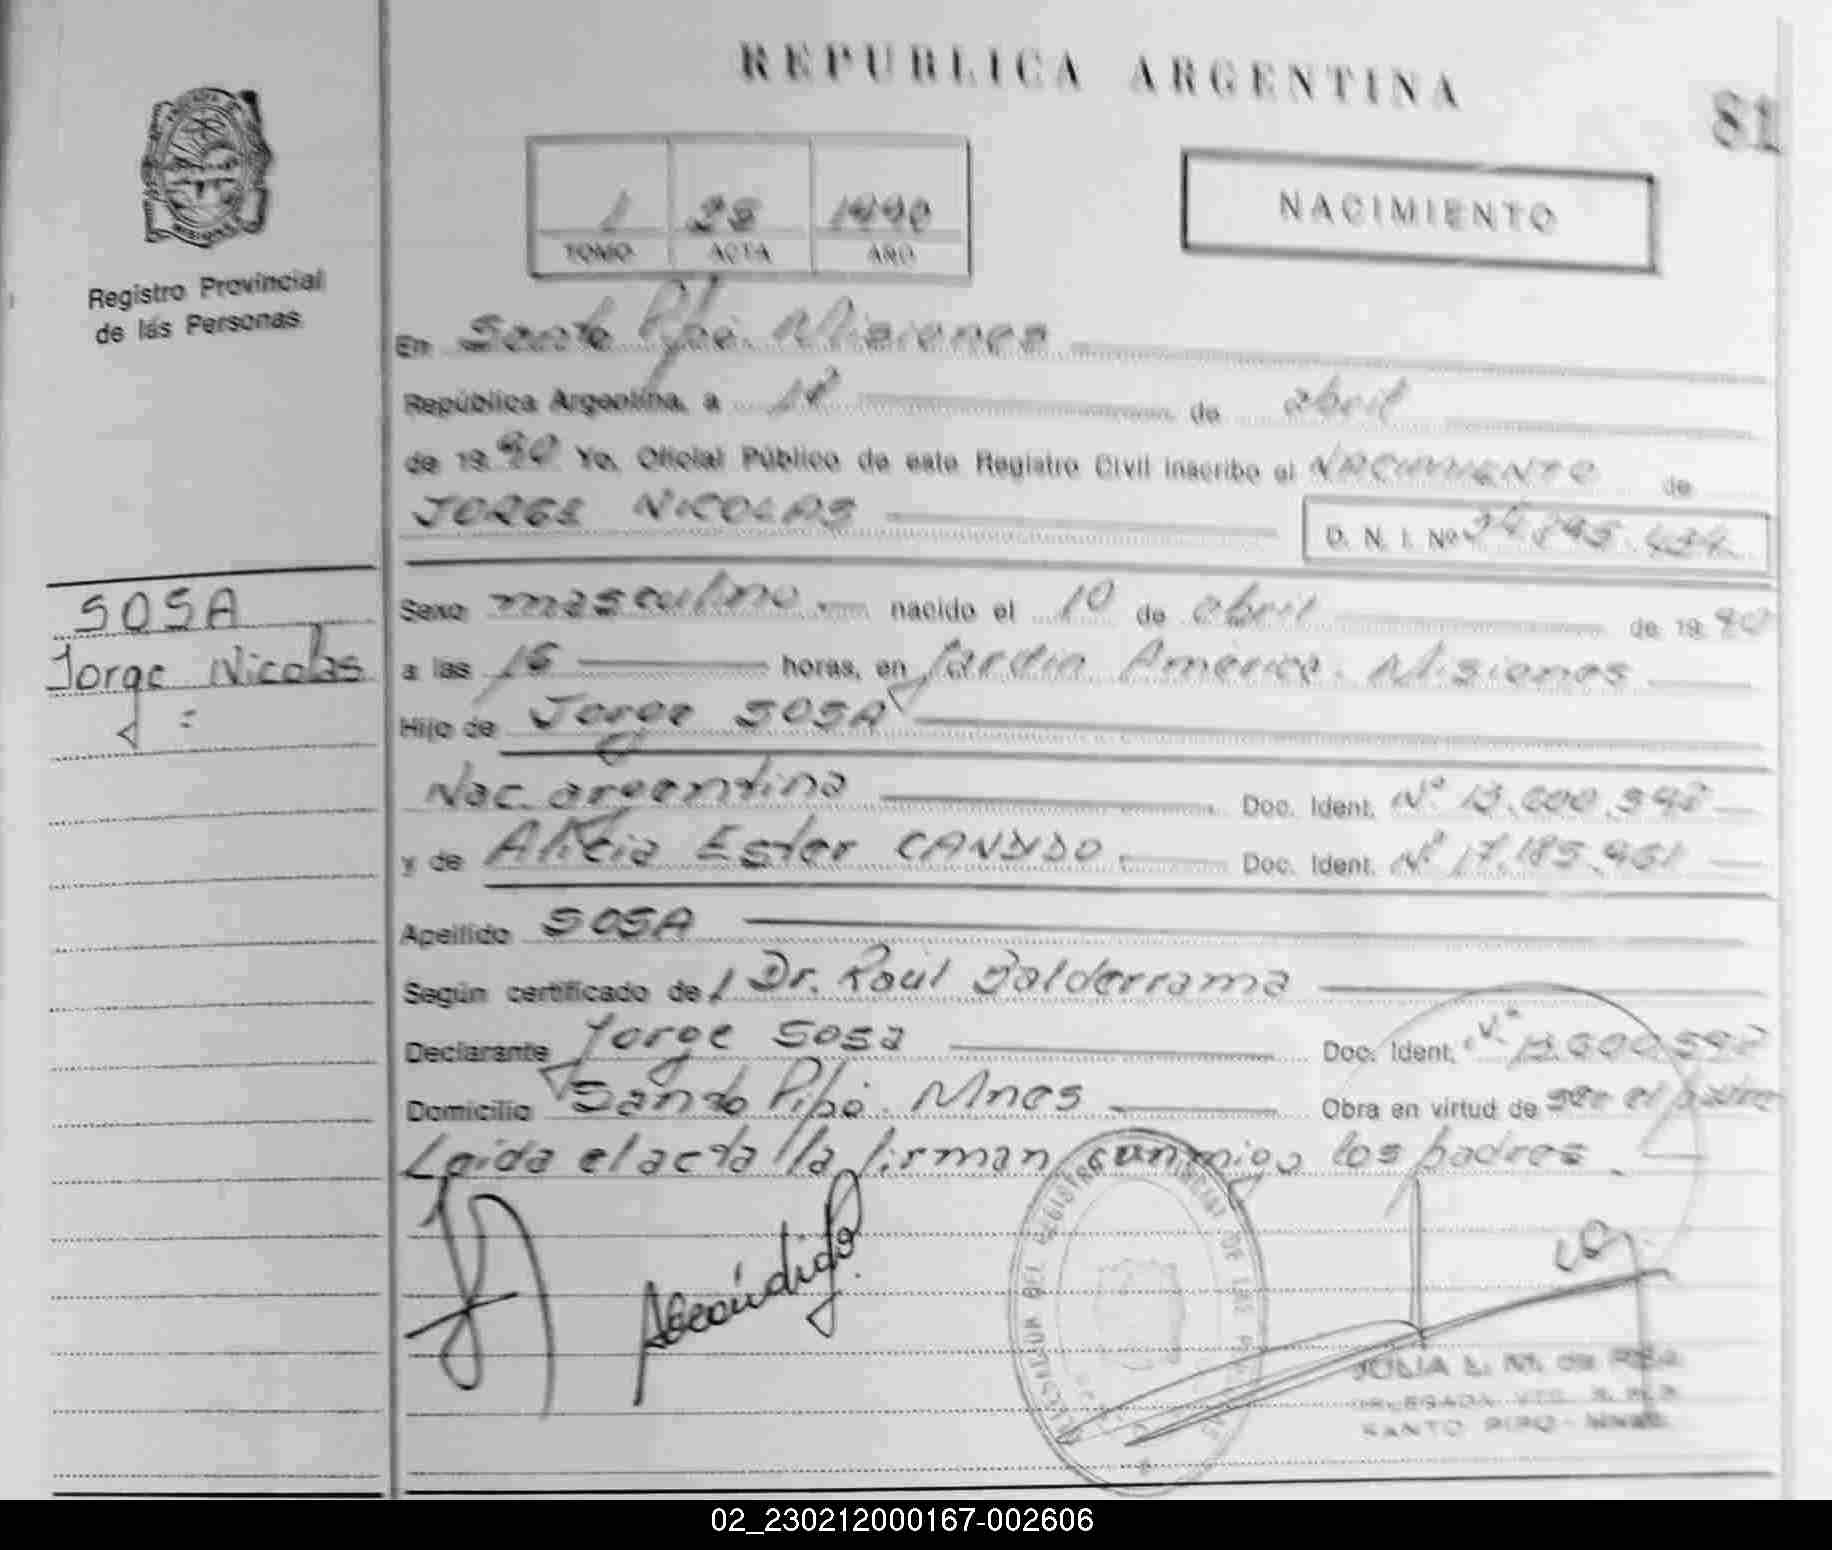 REPUBLICA ARGENTINA
81
Registro Provincial
de las Personas
1 28 1990
TOMO ACTA AÑO
NACIMIENTO
En Santo Pipó. Misiones
República Argentina, a 18 de abril
de 1990 Yo, Oficial Público de este Registro Civil inscribo el NACIMIENTO de
JORGE NICOLAS
D. N. I. Nº
SOSA
Jorge Nicolas
Sexo masculino nacido el 10 de abril de 1990
a las 16 horas, en Jardín América. Misiones
Hijo de Jorge SOSA
Nac. argentina Doc. Ident. Nº 13.600.598
y de Alicia Ester CANDIDO Doc. Ident. Nº 17.185.951
Apellido SOSA
Según certificado del Dr. Raúl Balderrama
Declarante Jorge Sosa Doc. Ident. Nº 13.600.598
Domicilio Santo Pipó. Mnes Obra en virtud de ser el padre
Leida el acta la firman conmigo los padres.
JULIA L. M. de
DELEGADA
SANTO PIPO - MNES.
02_230212000167-002606